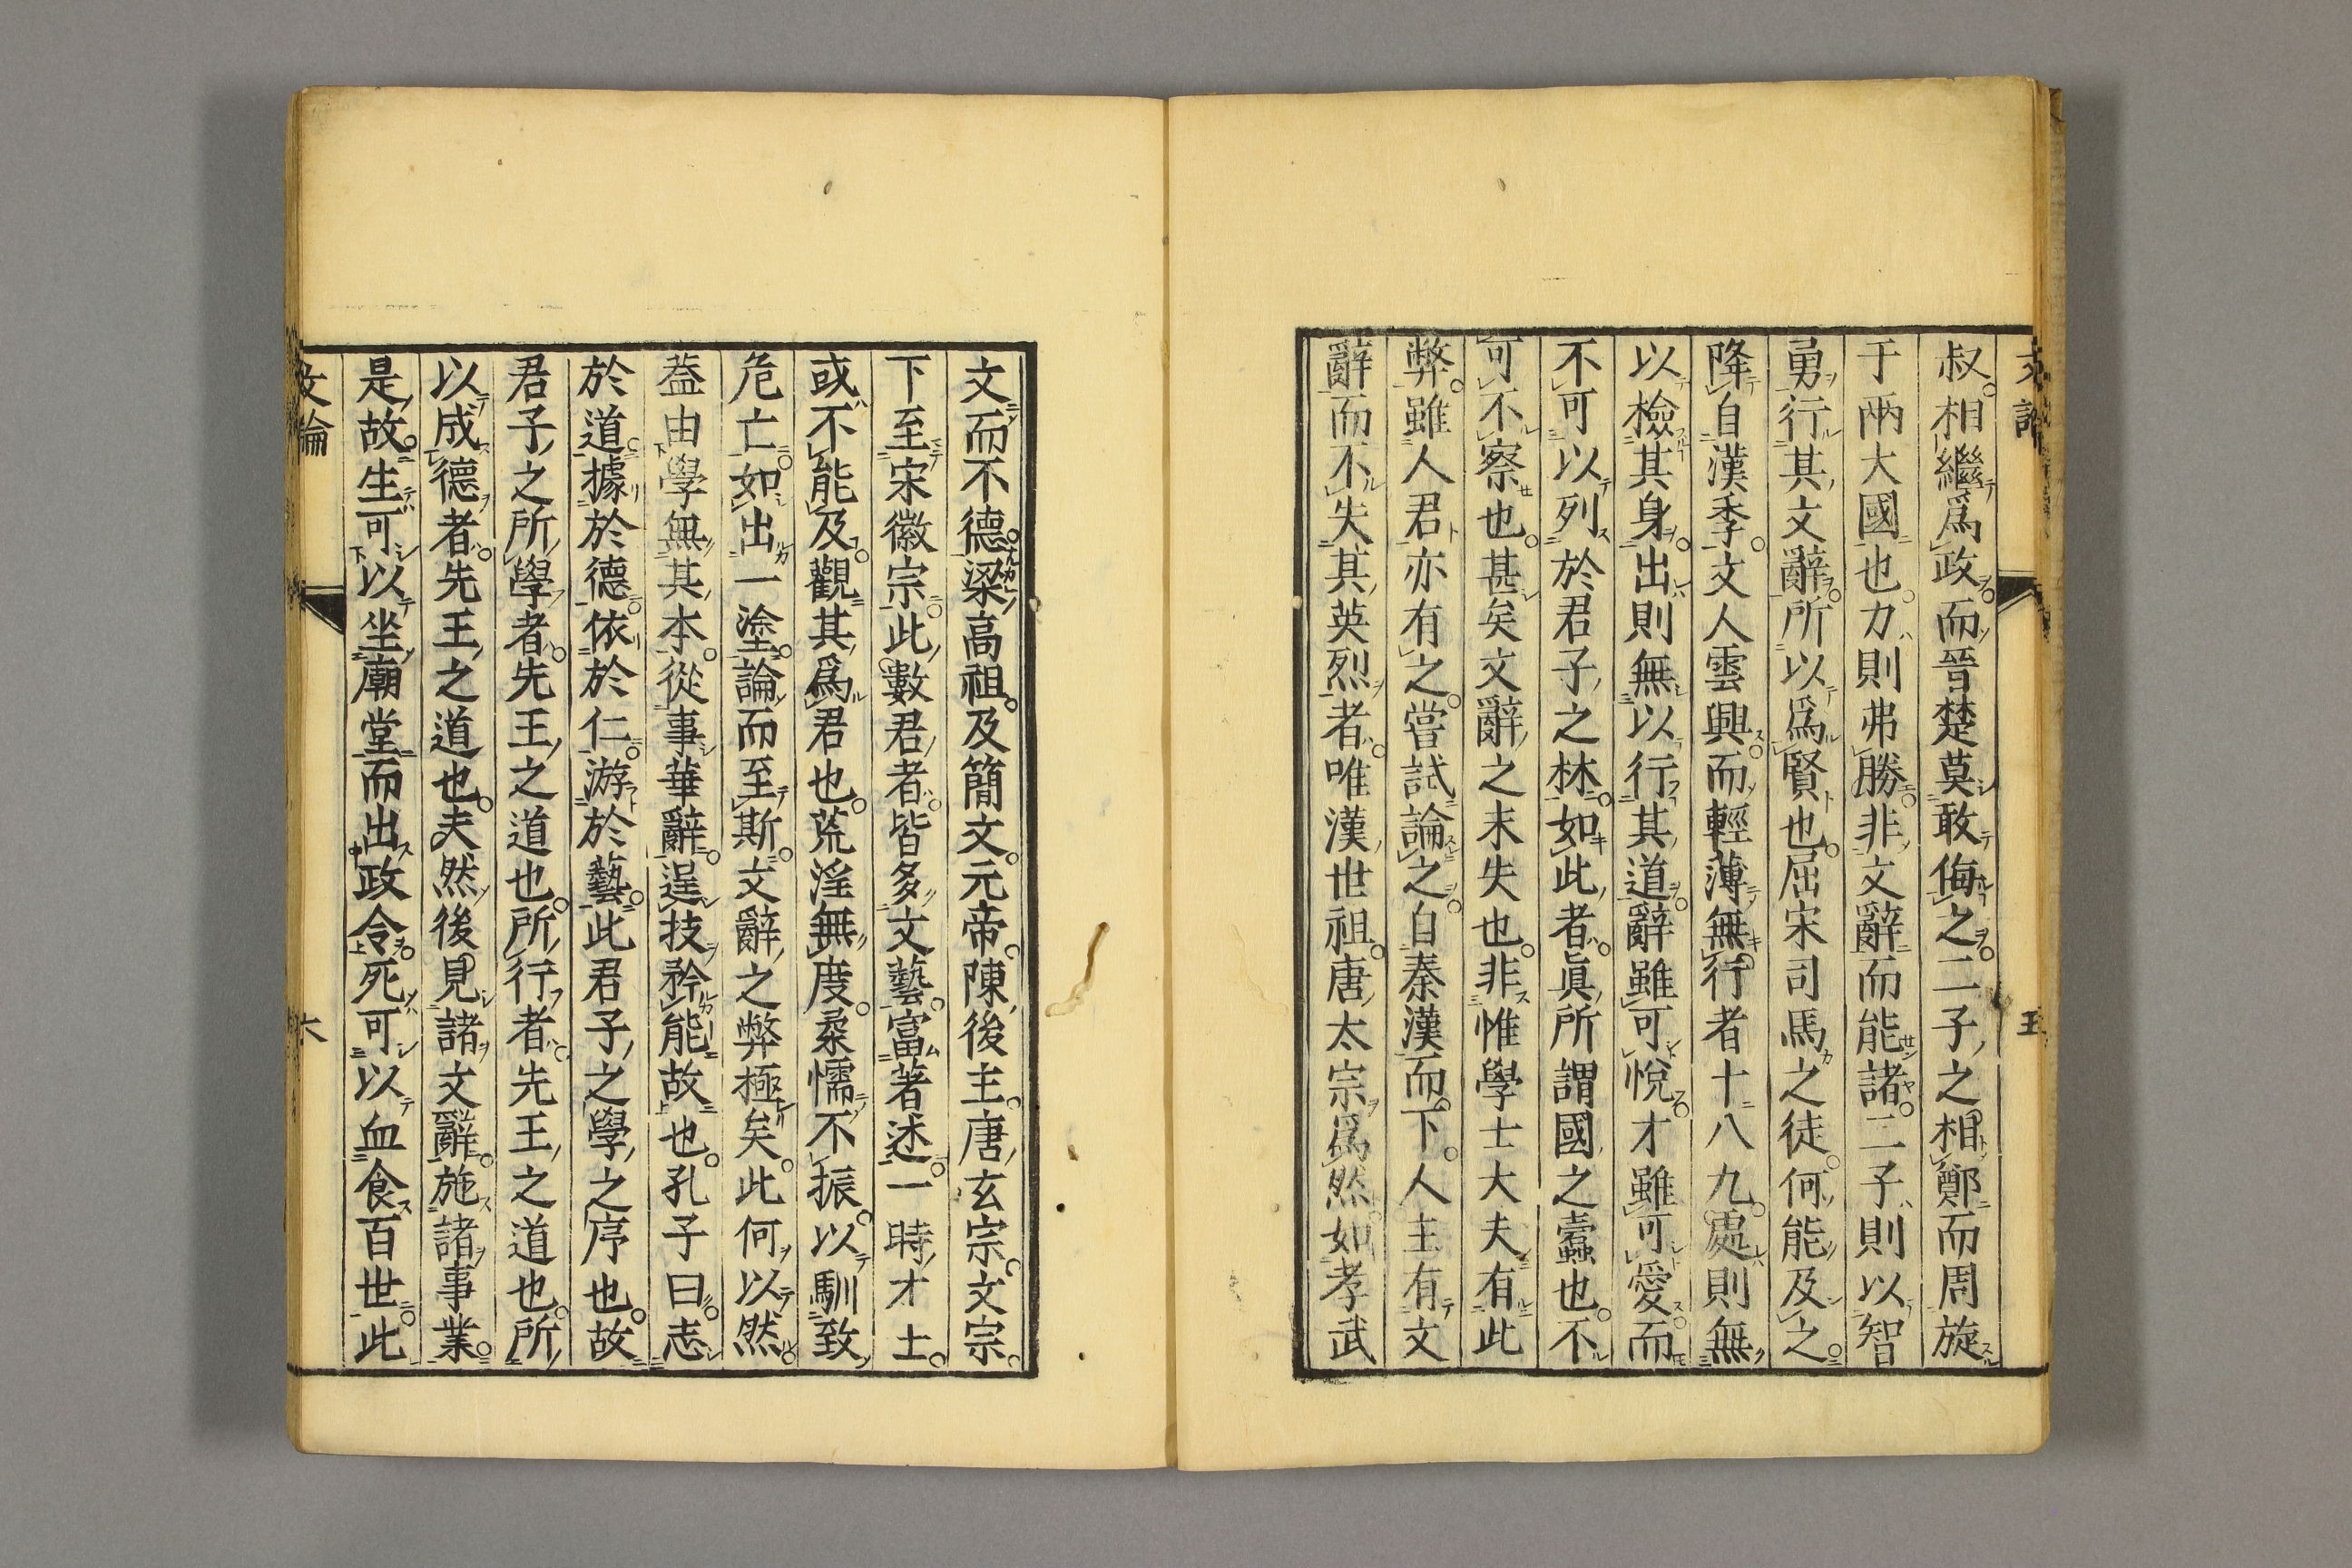 文論
五
叔相繼爲政而晉楚莫敢侮之二子之相鄭而周旋
于兩大國也力則弗勝非文辭而能諸二子則以智
勇行其文辭所以爲賢也屈宋司馬之徒何能及之
降自漢季文人雲興而輕薄無行者十八九處則無
以檢其身出則無以行其道辭雖可悅才雖可愛而
不可以列於君子之林如此者眞所謂國之蠹也不
可不察也甚矣文辭之末失也非惟學士大夫有此
弊雖人君亦有之嘗試論之自秦漢而下人主有文
辭而不失其英烈者唯漢世祖唐太宗爲然如孝武
文而不德梁高祖及簡文元帝陳後主唐玄宗文宗
下至宋徽宗此數君者皆多文藝富著述一時才士
或不能及觀其爲君也荒淫無度柔懦不振以馴致
危亡如出一塗論而至斯文辭之弊極矣此何以然
葢由學無其本從事華辭逞技矜能故也孔子曰志
於道據於德依於仁游於藝此君子之學之序也故
君子之所學者先王之道也所行者先王之道也所
以成德者先王之道也夫然後見諸文辭施諸事業
是故生可以坐廟堂而出政令死可以血食百世此
文論
六